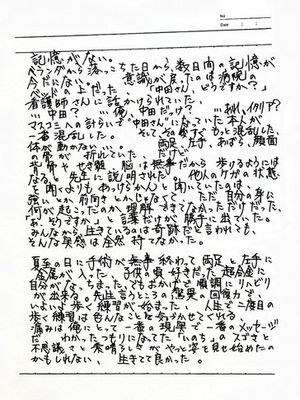 No.
Date
記憶がない。
ベランダから落っこちた日から、数日間の記憶が
今だにない。 意識が戻ったのは病院の
ベッドの上だった。 「中田さん、どうですか？」
看護師さんに話かけられていた。
…中田？ …俺、中田だっけ？
マスコミの計らいで"中田さん"になっていた本人が
一番混乱した。 そしてそのあとすぐ、もっと混乱した。
体が動かない…。 両足、左手、あばら、顔面
の骨が 折れていた、
背骨やせき髄、脳は無事だから歩けるようには
なる、と先生に説明された。 他人のケガの状態
を聞くよりもあっけらかんと聞いていたのは、
強いとか前向きとかじゃなく、ただ自分の身に
何が起こったのか、理解できてなかっただけだった。
「あ、そうですか」と言葉だけが勝手に出ていた。
みんなから、生きているのは奇跡だと言われても、
そんな実感は全然持てなかった。
夏至の日に手術が無事終わって両足と左手に
金属が入った。 子供の頃好きだった超合金に
自分がなっちまった。でもおかげで順調にリハビリ
が出来る。先生言うところの驚異の回復力で、
いよいよ歩く練習が始まった。 人生で二度目の
歩く練習は色んなことを気づかせてくれる。
痛みは俺にとって一番の現実で一番のメッセージ
だ わかったつもりになってた「いのち」のスゴさと
不思議さと素晴らしさが やっと姿を見せ始めたの
かもしれない、 生きてて良かった。